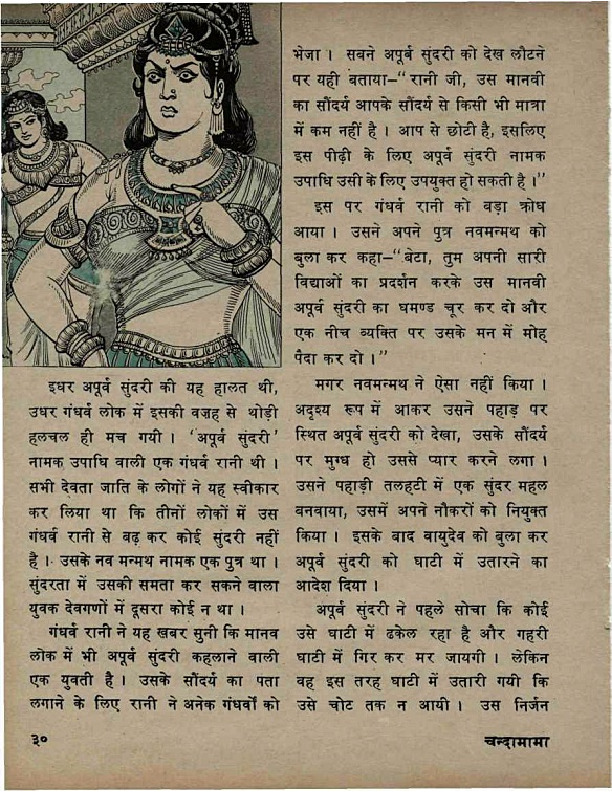 इधर अपूर्व सुंदरी की यह हालत थी,
उधर गंधर्व लोक में इसकी वज़ह से थोड़ी
हलचल ही मच गयी । 'अपूर्व सुंदरी'
नामक उपाधि वाली एक गंधर्व रानी थी ।
सभी देवता जाति के लोगों ने यह स्वीकार
कर लिया था कि तीनों लोकों में उस
गंधर्व रानी से बढ़ कर कोई सुंदरी नहीं
है । उसके नव मन्मथ नामक एक पुत्र था ।
सुंदरता में उसकी समता कर सकने वाला
युवक देवगणों में दूसरा कोई न था ।
गंधर्व रानी ने यह खबर सुनी कि मानव
लोक में भी अपूर्व सुंदरी कहलाने वाली
एक युवती है । उसके सौंदर्य का पता
लगाने के लिए रानी ने अनेक गंधर्वों को
भेजा । सबने अपूर्व सुंदरी को देख लौटने
पर यही बताया–“रानी जी, उस मानवी
का सौंदर्य आपके सौंदर्य से किसी भी मात्रा
में कम नहीं है । आप से छोटी है, इसलिए
इस पीढ़ी के लिए अपूर्व सुंदरी नामक
उपाधि उसी के लिए उपयुक्त हो सकती है ।”
इस पर गंधर्व रानी को बड़ा क्रोध
आया । उसने अपने पुत्र नवमन्मथ को
बुला कर कहा–“बेटा, तुम अपनी सारी
विद्याओं का प्रदर्शन करके उस मानवी
अपूर्व सुंदरी का घमण्ड चूर कर दो और
एक नीच व्यक्ति पर उसके मन में मोह
पैदा कर दो ।”
मगर नवमन्मथ ने ऐसा नहीं किया ।
अदृश्य रूप में आकर उसने पहाड़ पर
स्थित अपूर्व सुंदरी को देखा, उसके सौंदर्य
पर मुग्ध हो उससे प्यार करने लगा ।
उसने पहाड़ी तलहटी में एक सुंदर महल
बनवाया, उसमें अपने नौकरों को नियुक्त
किया । इसके बाद वायुदेव को बुला कर
अपूर्व सुंदरी को घाटी में उतारने का
आदेश दिया ।
अपूर्व सुंदरी ने पहले सोचा कि कोई
उसे घाटी में ढकेल रहा है और गहरी
घाटी में गिर कर मर जायगी । लेकिन
वह इस तरह घाटी में उतारी गयी कि
उसे चोट तक न आयी । उस निर्जन
३०
चन्दामामा